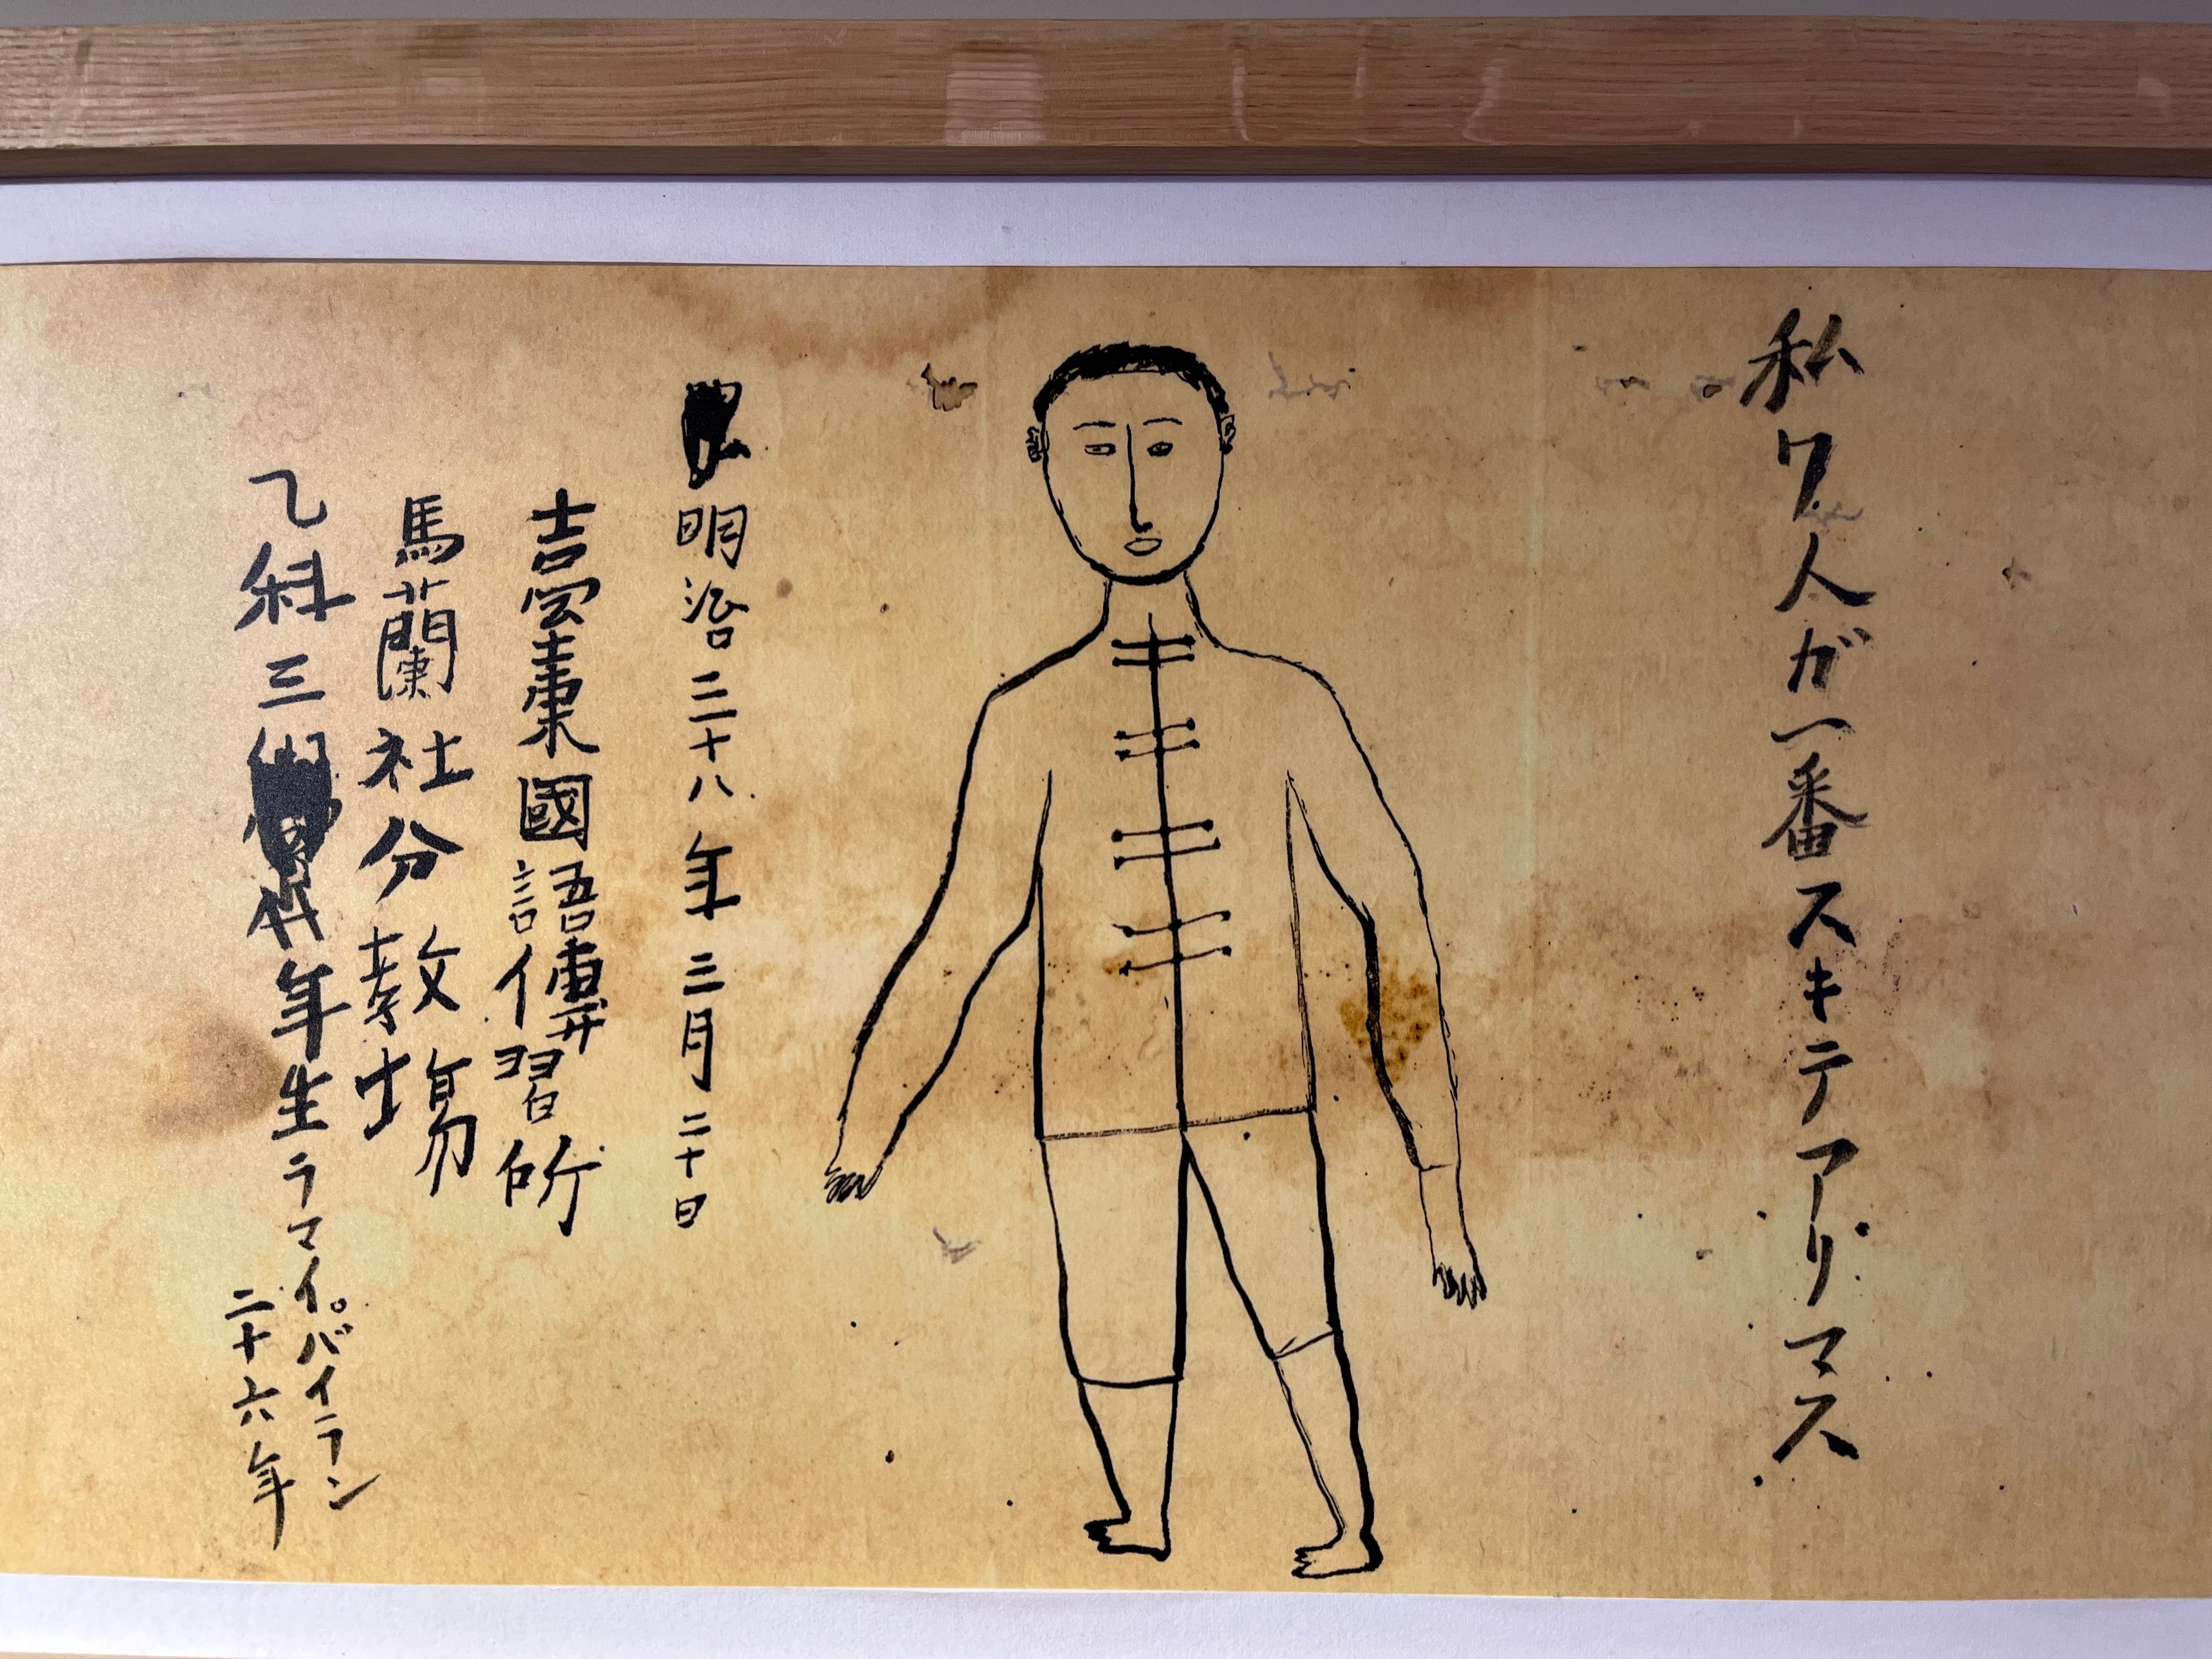 私ワ人ガ一番スキテアリマス
明治三十八年三月二十日
臺東國語傳習所
馬蘭社分教場
乙科三年生ラマイパイラン
二十六年